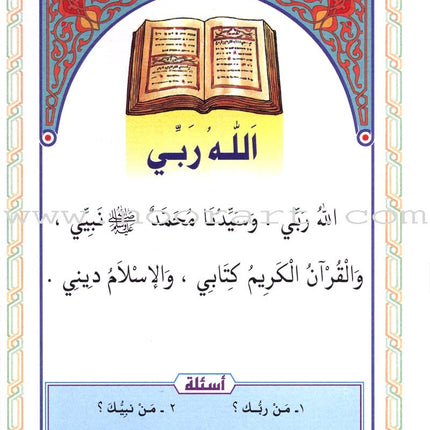 اَللهُ رَبِّي
اللهُ رَبِّي . وَسَيِّدُنَا مُحَمَّدٌ ﷺ نَبِيِّي ،
وَالْقُرْآنُ الْكَرِيمُ كِتَابِي ، وَالإِسْلَامُ دِينِي .
أسئلة
١ـ مَنْ رَبُّك ؟ ٢ ـ مَنْ نبيُّكَ ؟